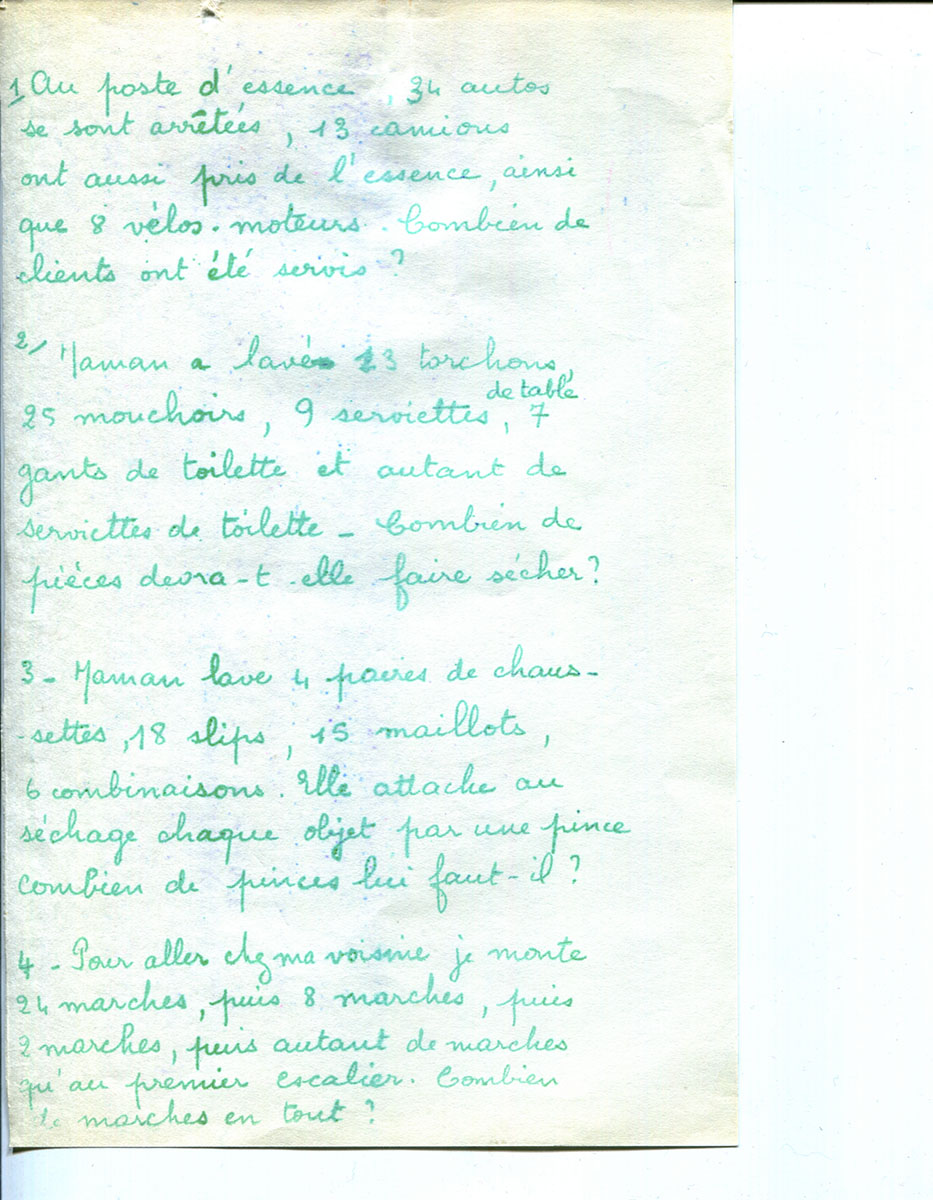 1 Au poste d'essence, 34 autos
se sont arrêtées, 13 camions
ont aussi pris de l'essence, ainsi
que 8 vélos-moteurs. Combien de
clients ont été servis ?
2/ Maman a lavé 23 torchons,
25 mouchoirs, 9 serviettes de table, 7
gants de toilette et autant de
serviettes de toilette - Combien de
pièces devra-t-elle faire sécher ?
3 - Maman lave 4 paires de chaus-
-settes, 18 slips, 15 maillots,
6 combinaisons. Elle attache au
séchage chaque objet par une pince
combien de pinces lui faut-il ?
4 - Pour aller chez ma voisine je monte
24 marches, puis 8 marches, puis
2 marches, puis autant de marches
qu'au premier escalier. Combien
de marches en tout ?